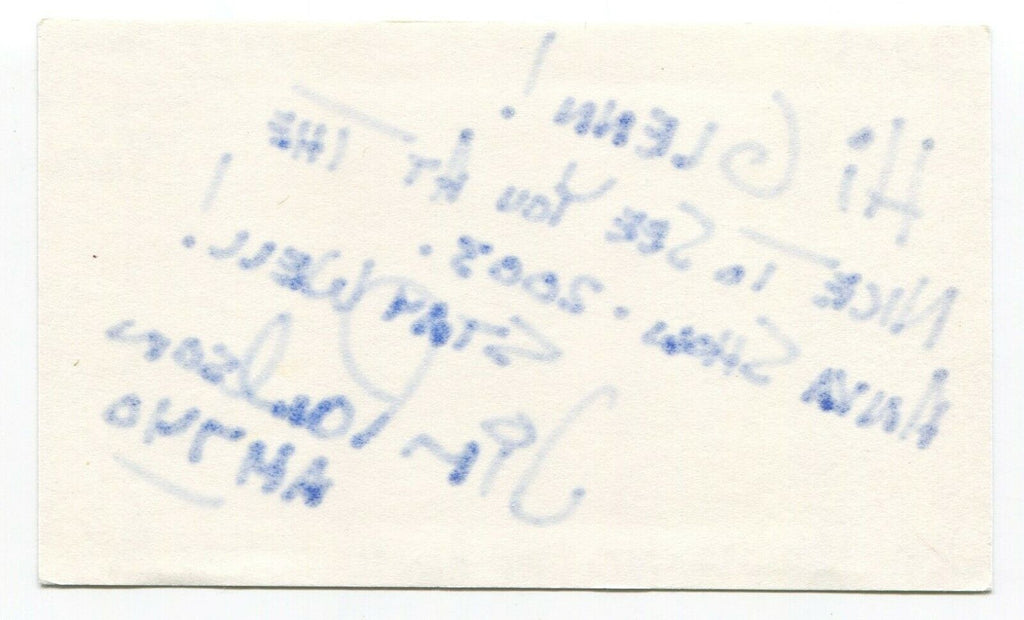 Hi GLENN!
NICE To SEE You AT THE
ANVA SHOW. 2003.
STAY WELL!
Jim Paulson
AM740